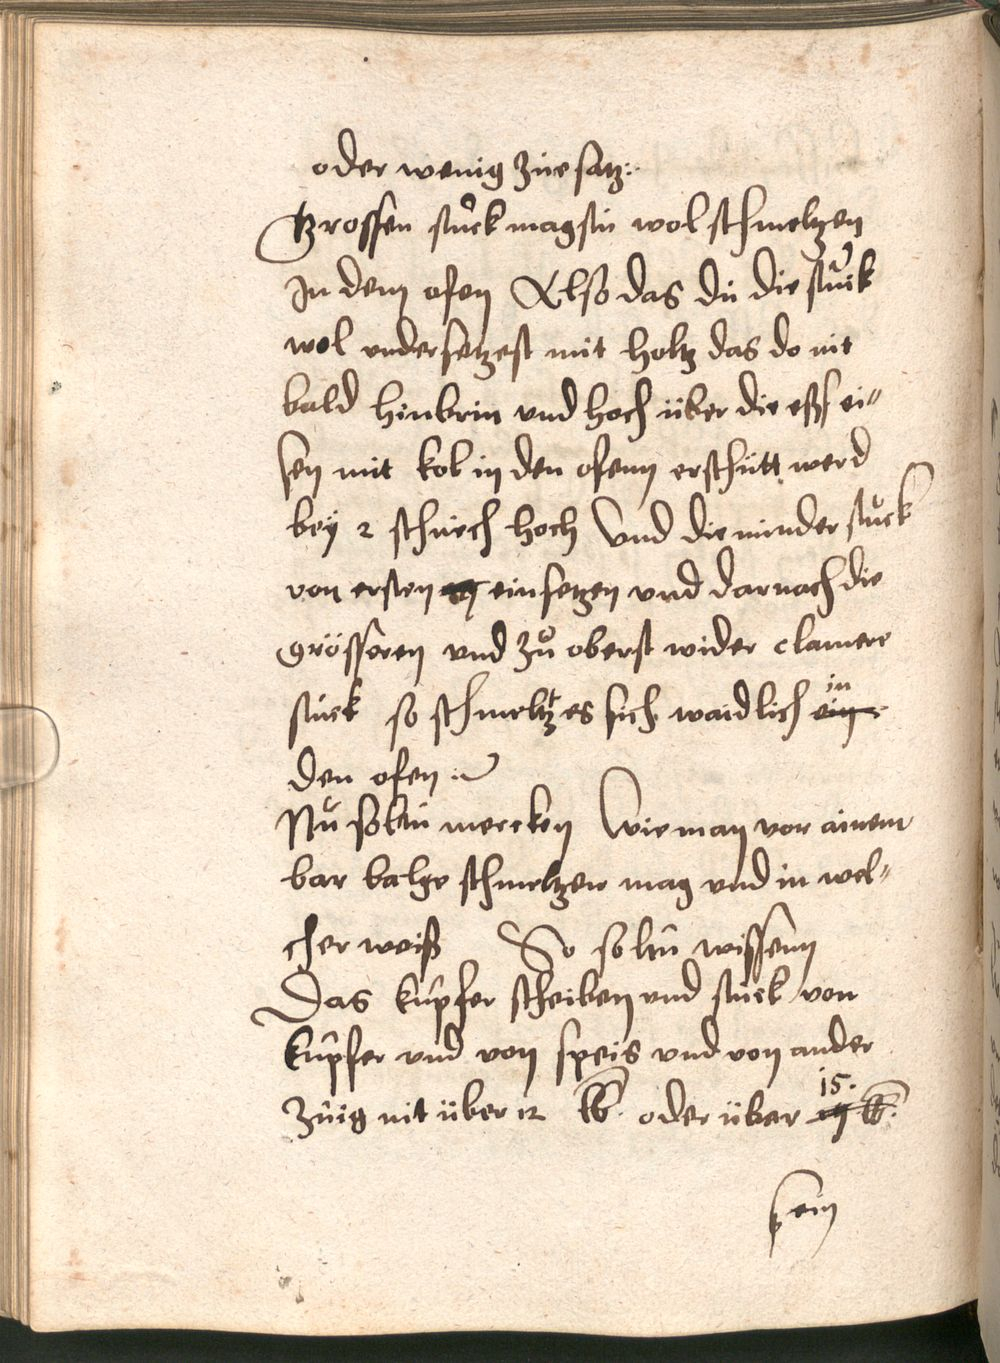 oder wenig zúe satz:
Grossen stúck magstú wol schmeltzen
In dem ofen Also das dú die stúck
wol undersetzest mit holtz das do nit
bald hinbrin und hoch über die esß ei"
sen mit kol in den ofenn erschütt werd
bey 2 schúch hoch Und die minder stuck
von ersten einsetzen und darnach die
grösseren und zuͦ oberst wider clainere
stúck so schmeltzt es sich waidlich in
den ofen
Nuͦ soltú mercken Wie man vor ainem
bar balge schmeltzen mag und in wel"
cher weiß So soltú wissenn
Das kúpfer scheiben und stúck von
kúpfer und von speis und von ander
Zúig nit über 12 lb. oder über 15. lb.
sein